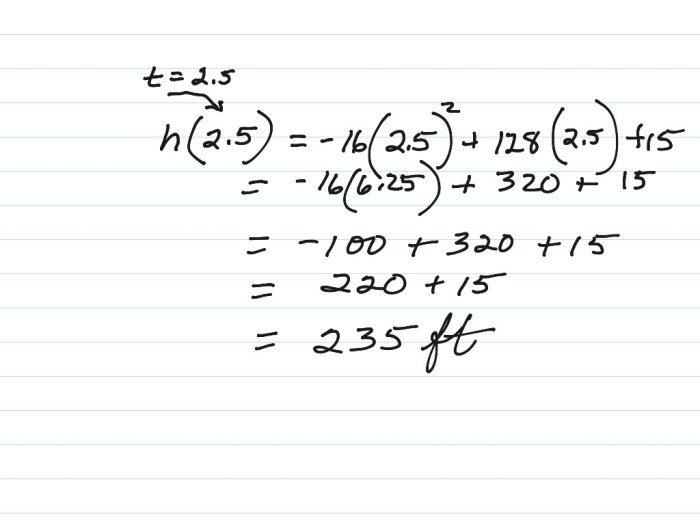 t = 2.5
h(2.5) = -16(2.5)² + 128(2.5) + 15
= -16(6.25) + 320 + 15
= -100 + 320 + 15
= 220 + 15
= 235 ft